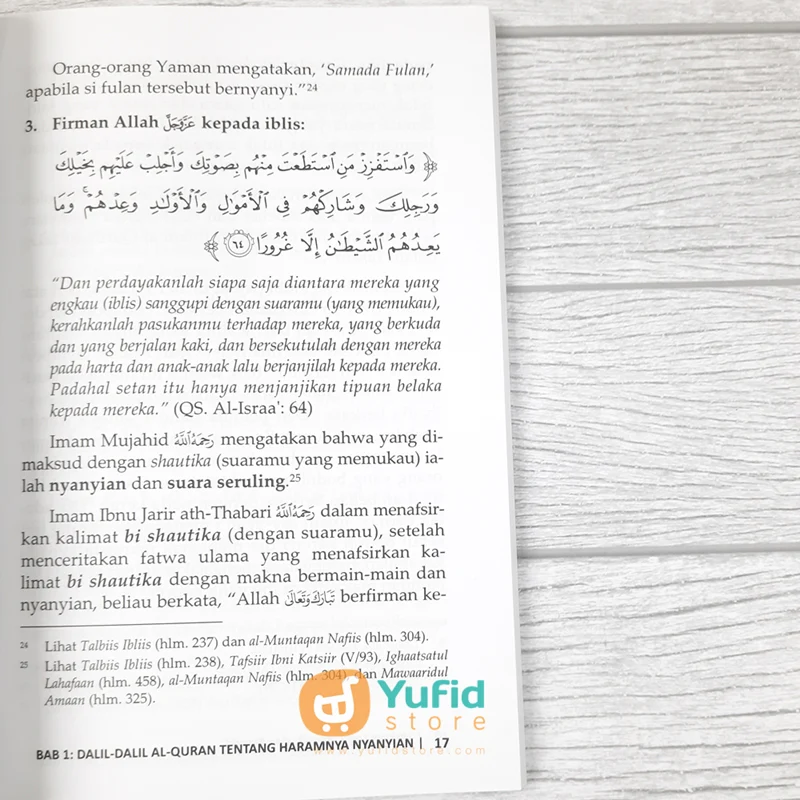 Orang-orang Yaman mengatakan, ‘Samada Fulan,’
apabila si fulan tersebut bernyanyi.”24
3. Firman Allah عَزَّوَجَلَّ kepada iblis:
﴿ وَٱسْتَفْزِزْ مَنِ ٱسْتَطَعْتَ مِنْهُم بِصَوْتِكَ وَأَجْلِبْ عَلَيْهِم بِخَيْلِكَ
وَرَجِلِكَ وَشَارِكْهُمْ فِى ٱلْأَمْوَٰلِ وَٱلْأَوْلَٰدِ وَعِدْهُمْ ۚ وَمَا
يَعِدُهُمُ ٱلشَّيْطَٰنُ إِلَّا غُرُورًا ٦٤ ﴾
“Dan perdayakanlah siapa saja diantara mereka yang
engkau (iblis) sanggupi dengan suaramu (yang memukau),
kerahkanlah pasukanmu terhadap mereka, yang berkuda
dan yang berjalan kaki, dan bersekutulah dengan mereka
pada harta dan anak-anak lalu berjanjilah kepada mereka.
Padahal setan itu hanya menjanjikan tipuan belaka
kepada mereka.” (QS. Al-Israa': 64)
Imam Mujahid رَحِمَهُ ٱللَّهُ mengatakan bahwa yang di-
maksud dengan shautika (suaramu yang memukau) ia-
lah nyanyian dan suara seruling.25
Imam Ibnu Jarir ath-Thabari رَحِمَهُ ٱللَّهُ dalam menafsir-
kan kalimat bi shautika (dengan suaramu), setelah
menceritakan fatwa ulama yang menafsirkan ka-
limat bi shautika dengan makna bermain-main dan
nyanyian, beliau berkata, “Allah تَبَارَكَ وَتَعَالَىٰ berfirman ke-
24 Lihat Talbiis Ibliis (hlm. 237) dan al-Muntaqan Nafiis (hlm. 304).
25 Lihat Talbiis Ibliis (hlm. 238), Tafsiir Ibni Katsiir (V/93), Ighaatsatul
Lahafaan (hlm. 458), al-Muntaqan Nafiis (hlm. 304), dan Mawaaridul
Amaan (hlm. 325).
Yufid
store
www.yufidstore.com
BAB 1: DALIL-DALIL AL-QURAN TENTANG HARAMNYA NYANYIAN | 17